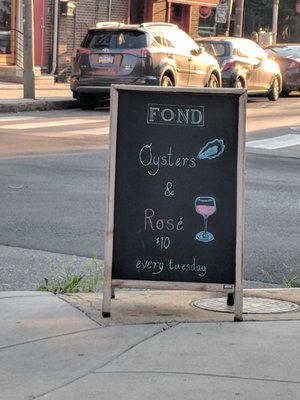 FOND
Oysters
&
Rosé
$10
every tuesday